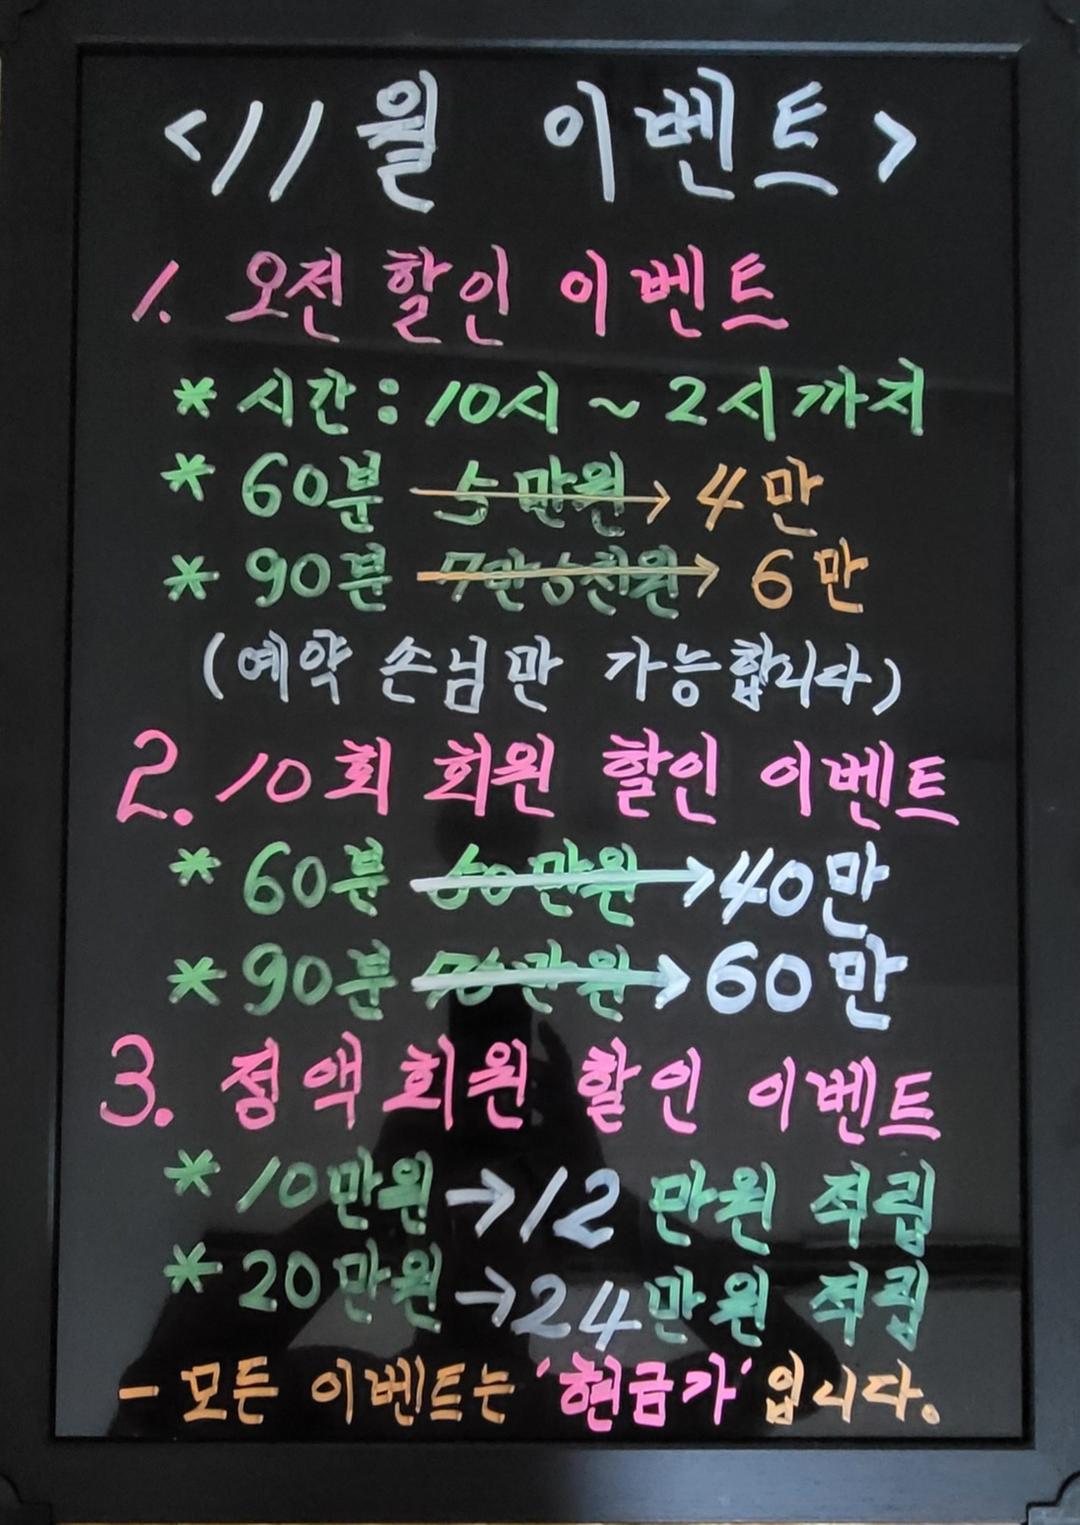 <11월 이벤트>
1. 오전 할인 이벤트
* 시간 : 10시 ~ 2시까지
* 60분 5만원 → 4만
* 90분 7만5천원 → 6만
(예약 손님만 가능합니다)
2. 10회 회원 할인 이벤트
* 60분 50만원 → 40만
* 90분 만원 → 60만
3. 정액 회원 할인 이벤트
* 10만원 → 12만원 적립
* 20만원 → 24만원 적립
- 모든 이벤트는 '현금가' 입니다.